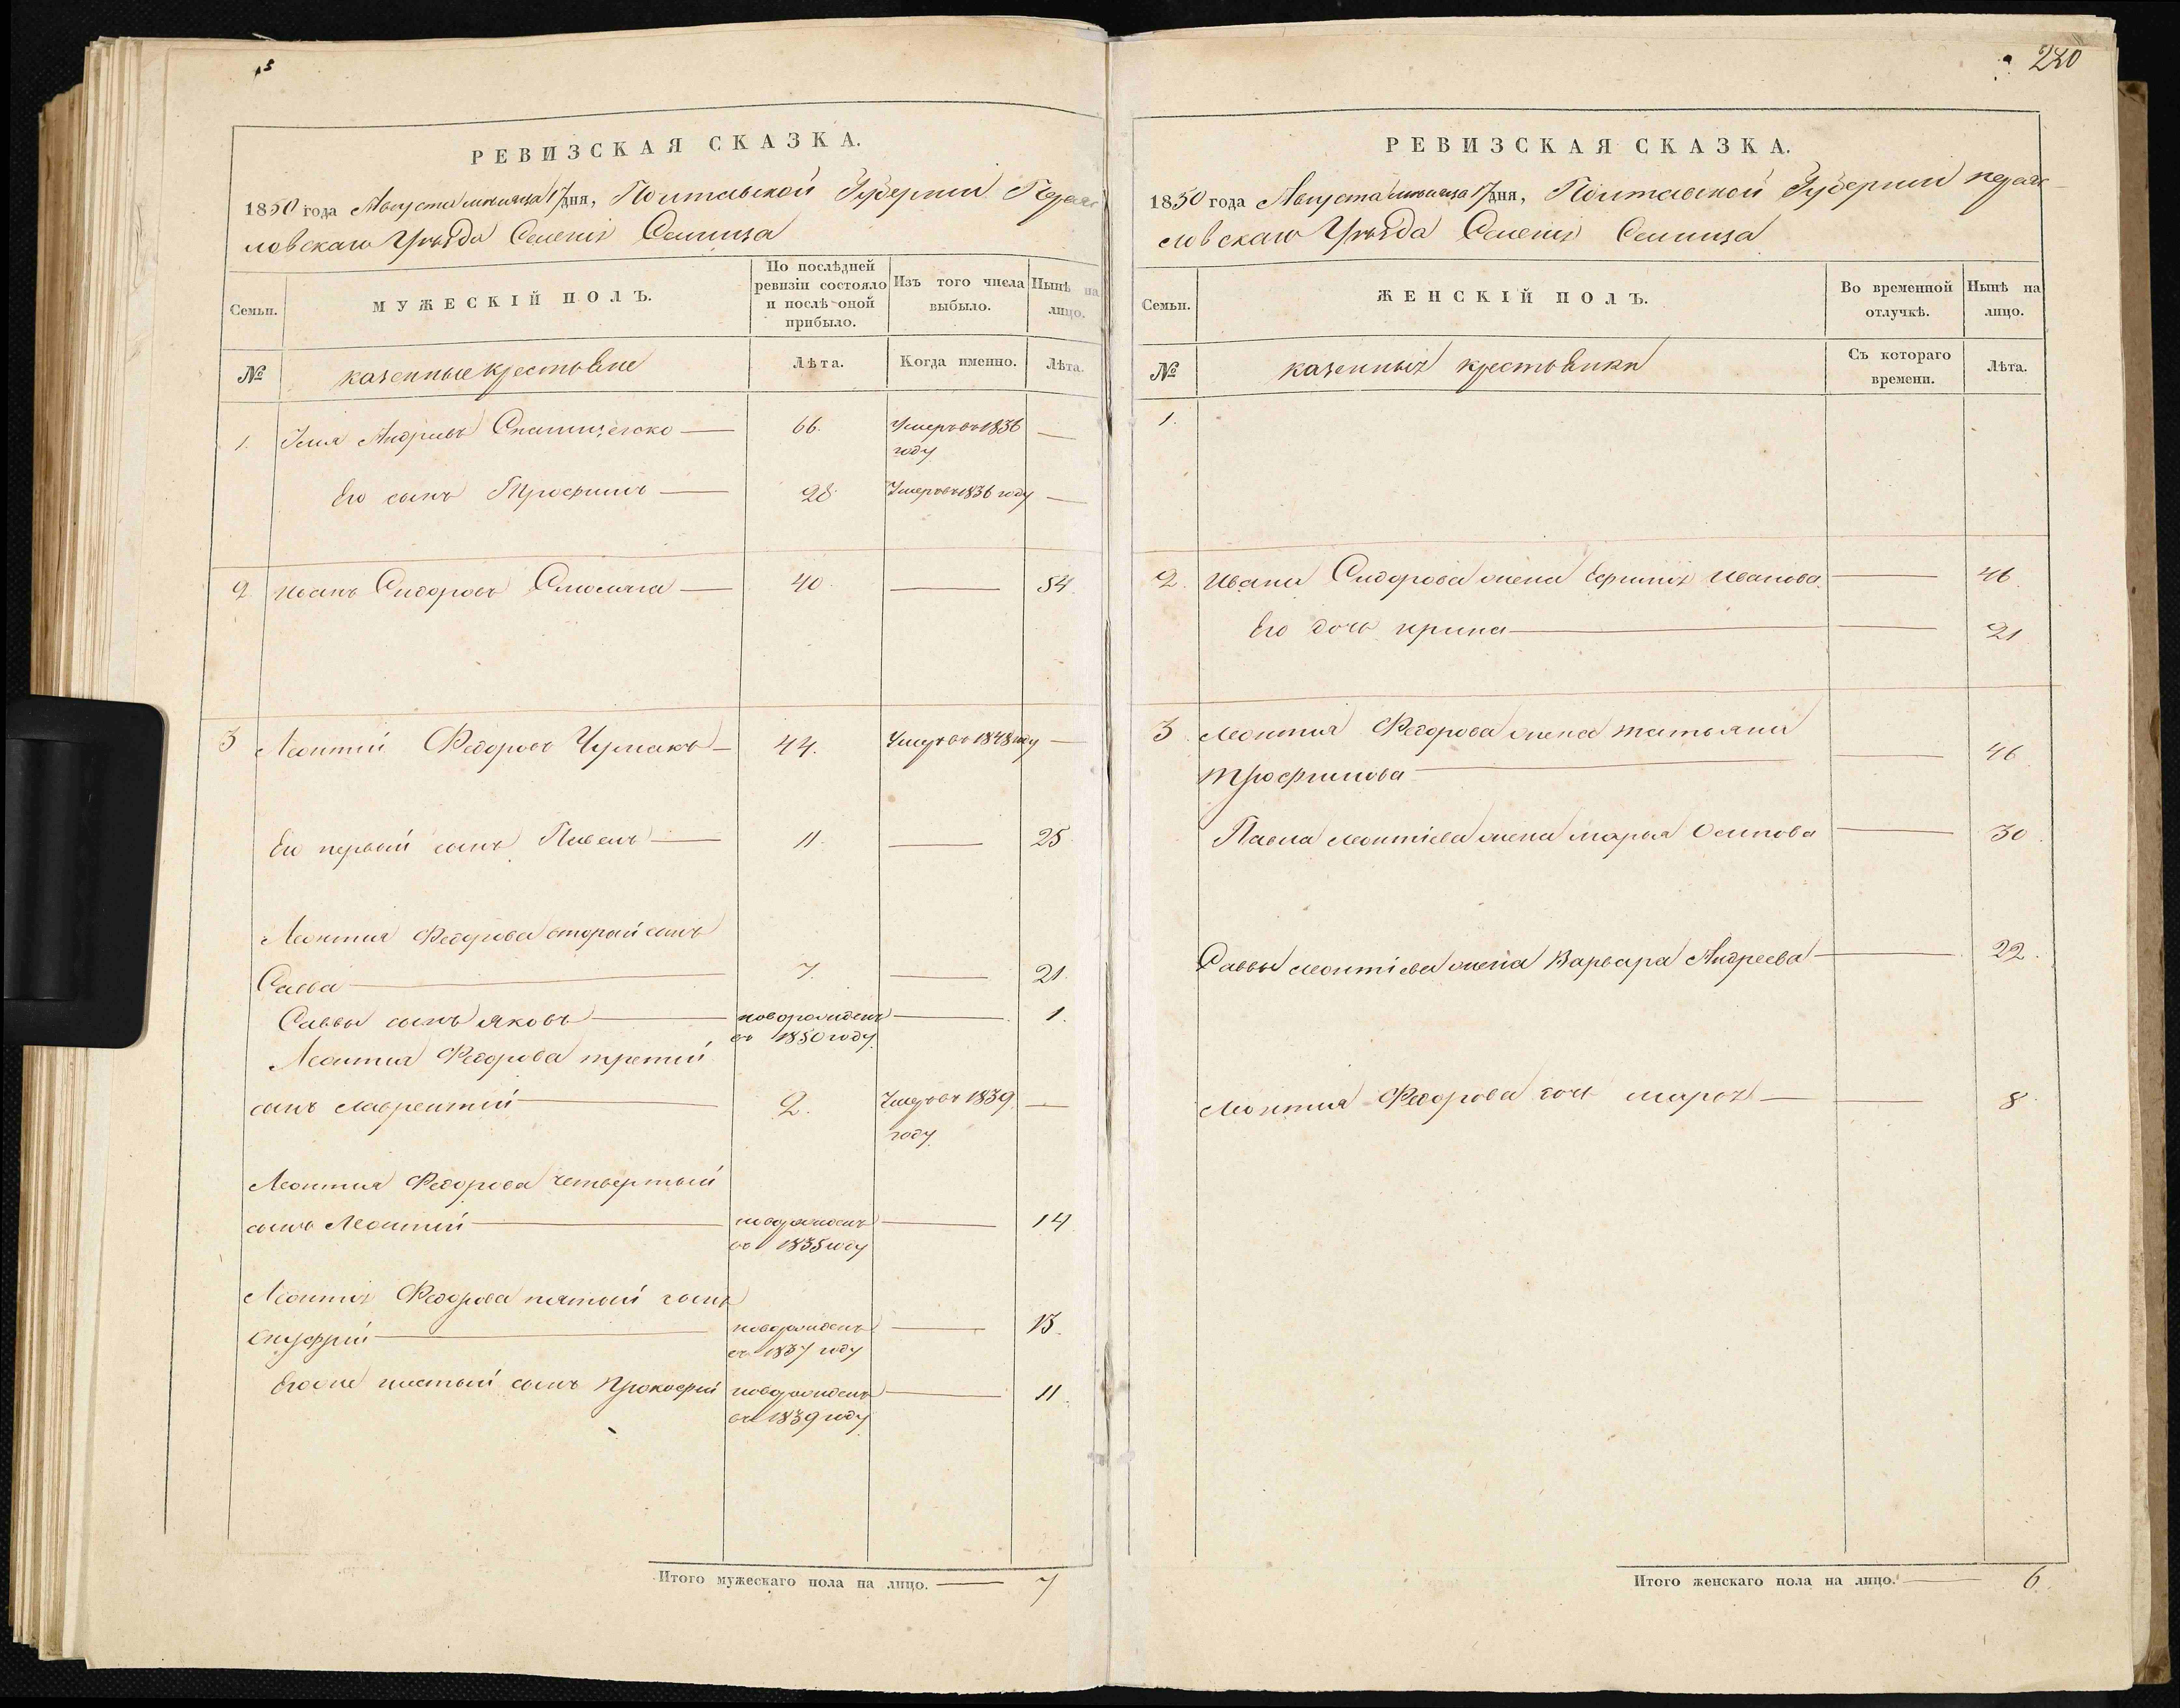 280
РЕВИЗСКАЯ СКАЗКА.
1850 года Августа месяца 17 дня, Полтавской Губернии Переяс
ловскаго Уѣзда Селенія
Семьи.
МУЖЕСКІЙ ПОЛЪ.
По послѣдней
ревизіи состояло
и послѣ оной
прибыло.
Изъ того числа
выбыло.
Нынѣ на
лицо.
№
казенные крестьяне
Лѣта.
Когда именно.
Лѣта.
1. Андріевъ 66. Умеръ въ 1836
году
Его сынъ Трофимъ 28. Умеръ въ 1836 году
2 Иванъ Сидоровъ 40. 54.
3 Леонтій Федоровъ Чумакъ 44. Умеръ въ 1848 году
Его первый сынъ Павелъ 11. 25
Леонтія Федорова вторый сынъ
Савва 7. 21.
Саввы сынъ Яковъ новорожденъ 1.
въ 1850 году
Леонтія Федорова третій
сынъ Лаврентій 2. Умеръ въ 1839
году
Леонтія Федорова четвертый
сынъ Леонтій новорожденъ 14
въ 1835 году
Леонтія Федорова пятый сынъ
Онуфрій новорожденъ 13.
въ 1837 году
Егоже шестый сынъ Прокофій новорожденъ 11.
въ 1839 году
Итого мужескаго пола на лицо. 7
РЕВИЗСКАЯ СКАЗКА.
1850 года Августа месяца 17 дня, Полтавской Губернии переяс
ловскаго Уѣзда Селенія
Семьи.
ЖЕНСКІЙ ПОЛЪ.
Во временной
отлучкѣ.
Нынѣ на
лицо.
№
казенныя крестьянки
Съ котораго
времени.
Лѣта.
1.
2. Ивана Сидорова жена Ефимія Иванова 46.
Его дочь ирина 21
3. Леонтія Федорова жена татьяна
трофимова 46
Павла леонтіева жена марья Осипова 30.
Саввы леонтіева жена Варвара Андреева 22.
Леонтія Федорова дочь 8.
Итого женскаго пола на лицо. 6.